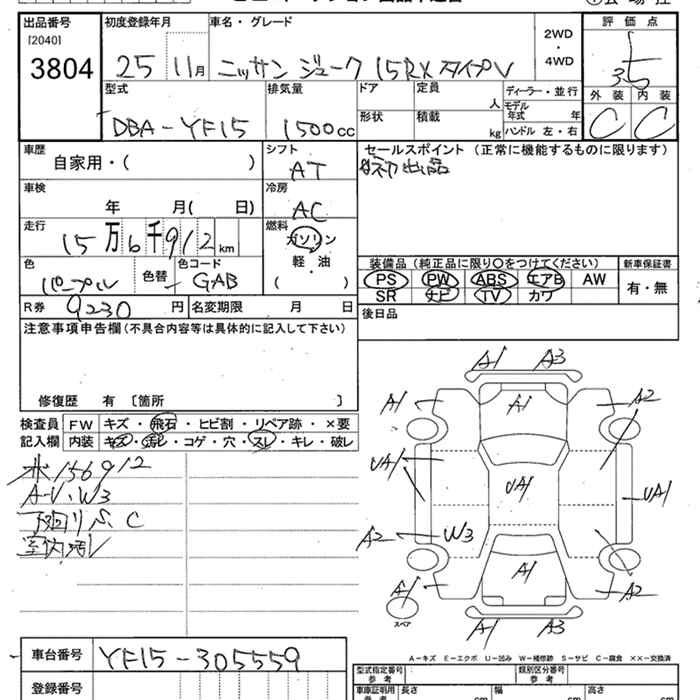 出品番号 [2040] 3804
初度登録年月 25 11月
車名・グレード ニッサン ジューク 15RX タイプV
2WD ・ 4WD
評価点 3.5
外装 C 内装 C
型式 DBA-YF15
排気量 1500cc
ドア 形状
定員 人
積載 kg
ディーラー・並行
モデル年式 年
ハンドル 左・右
車歴 自家用・( )
シフト AT
セールスポイント (正常に機能するものに限ります)
初出品
車検 年 月( 日)
冷房 AC
走行 15万6千912km
燃料 ガソリン ・ 軽油 ( )
色 パープル 色替
色コード GAB
装備品(純正品に限り○をつけてください)
PS PW ABS エアB AW
SR ナビ TV カワ
新車保証書 有・無
R券 9230円
名変期限 月 日
後日品
注意事項申告欄(不具合内容等は具体的に記入して下さい)
修復歴 有 [箇所 ]
検査員記入欄
FW キズ・飛石・ヒビ割・リペア跡・×要
内装 キズ・汚レ・コゲ・穴・スレ・キレ・破レ
156912
A-U、W3
下回リS、C
室内汚レ
A1 A3
A1 A1 A2
UA1 UA1 UA1
A2 W3
A1 A1 A2
スペア
A1 A3
A-キズ E-エクボ U-凹み W-補修跡 S-サビ C-腐食 ××-交換済
車台番号 YF15-305559
登録番号
型式指定番号 参考
類別区分番号 参考
車庫証明用 参考 長さ cm 幅 cm 高さ cm